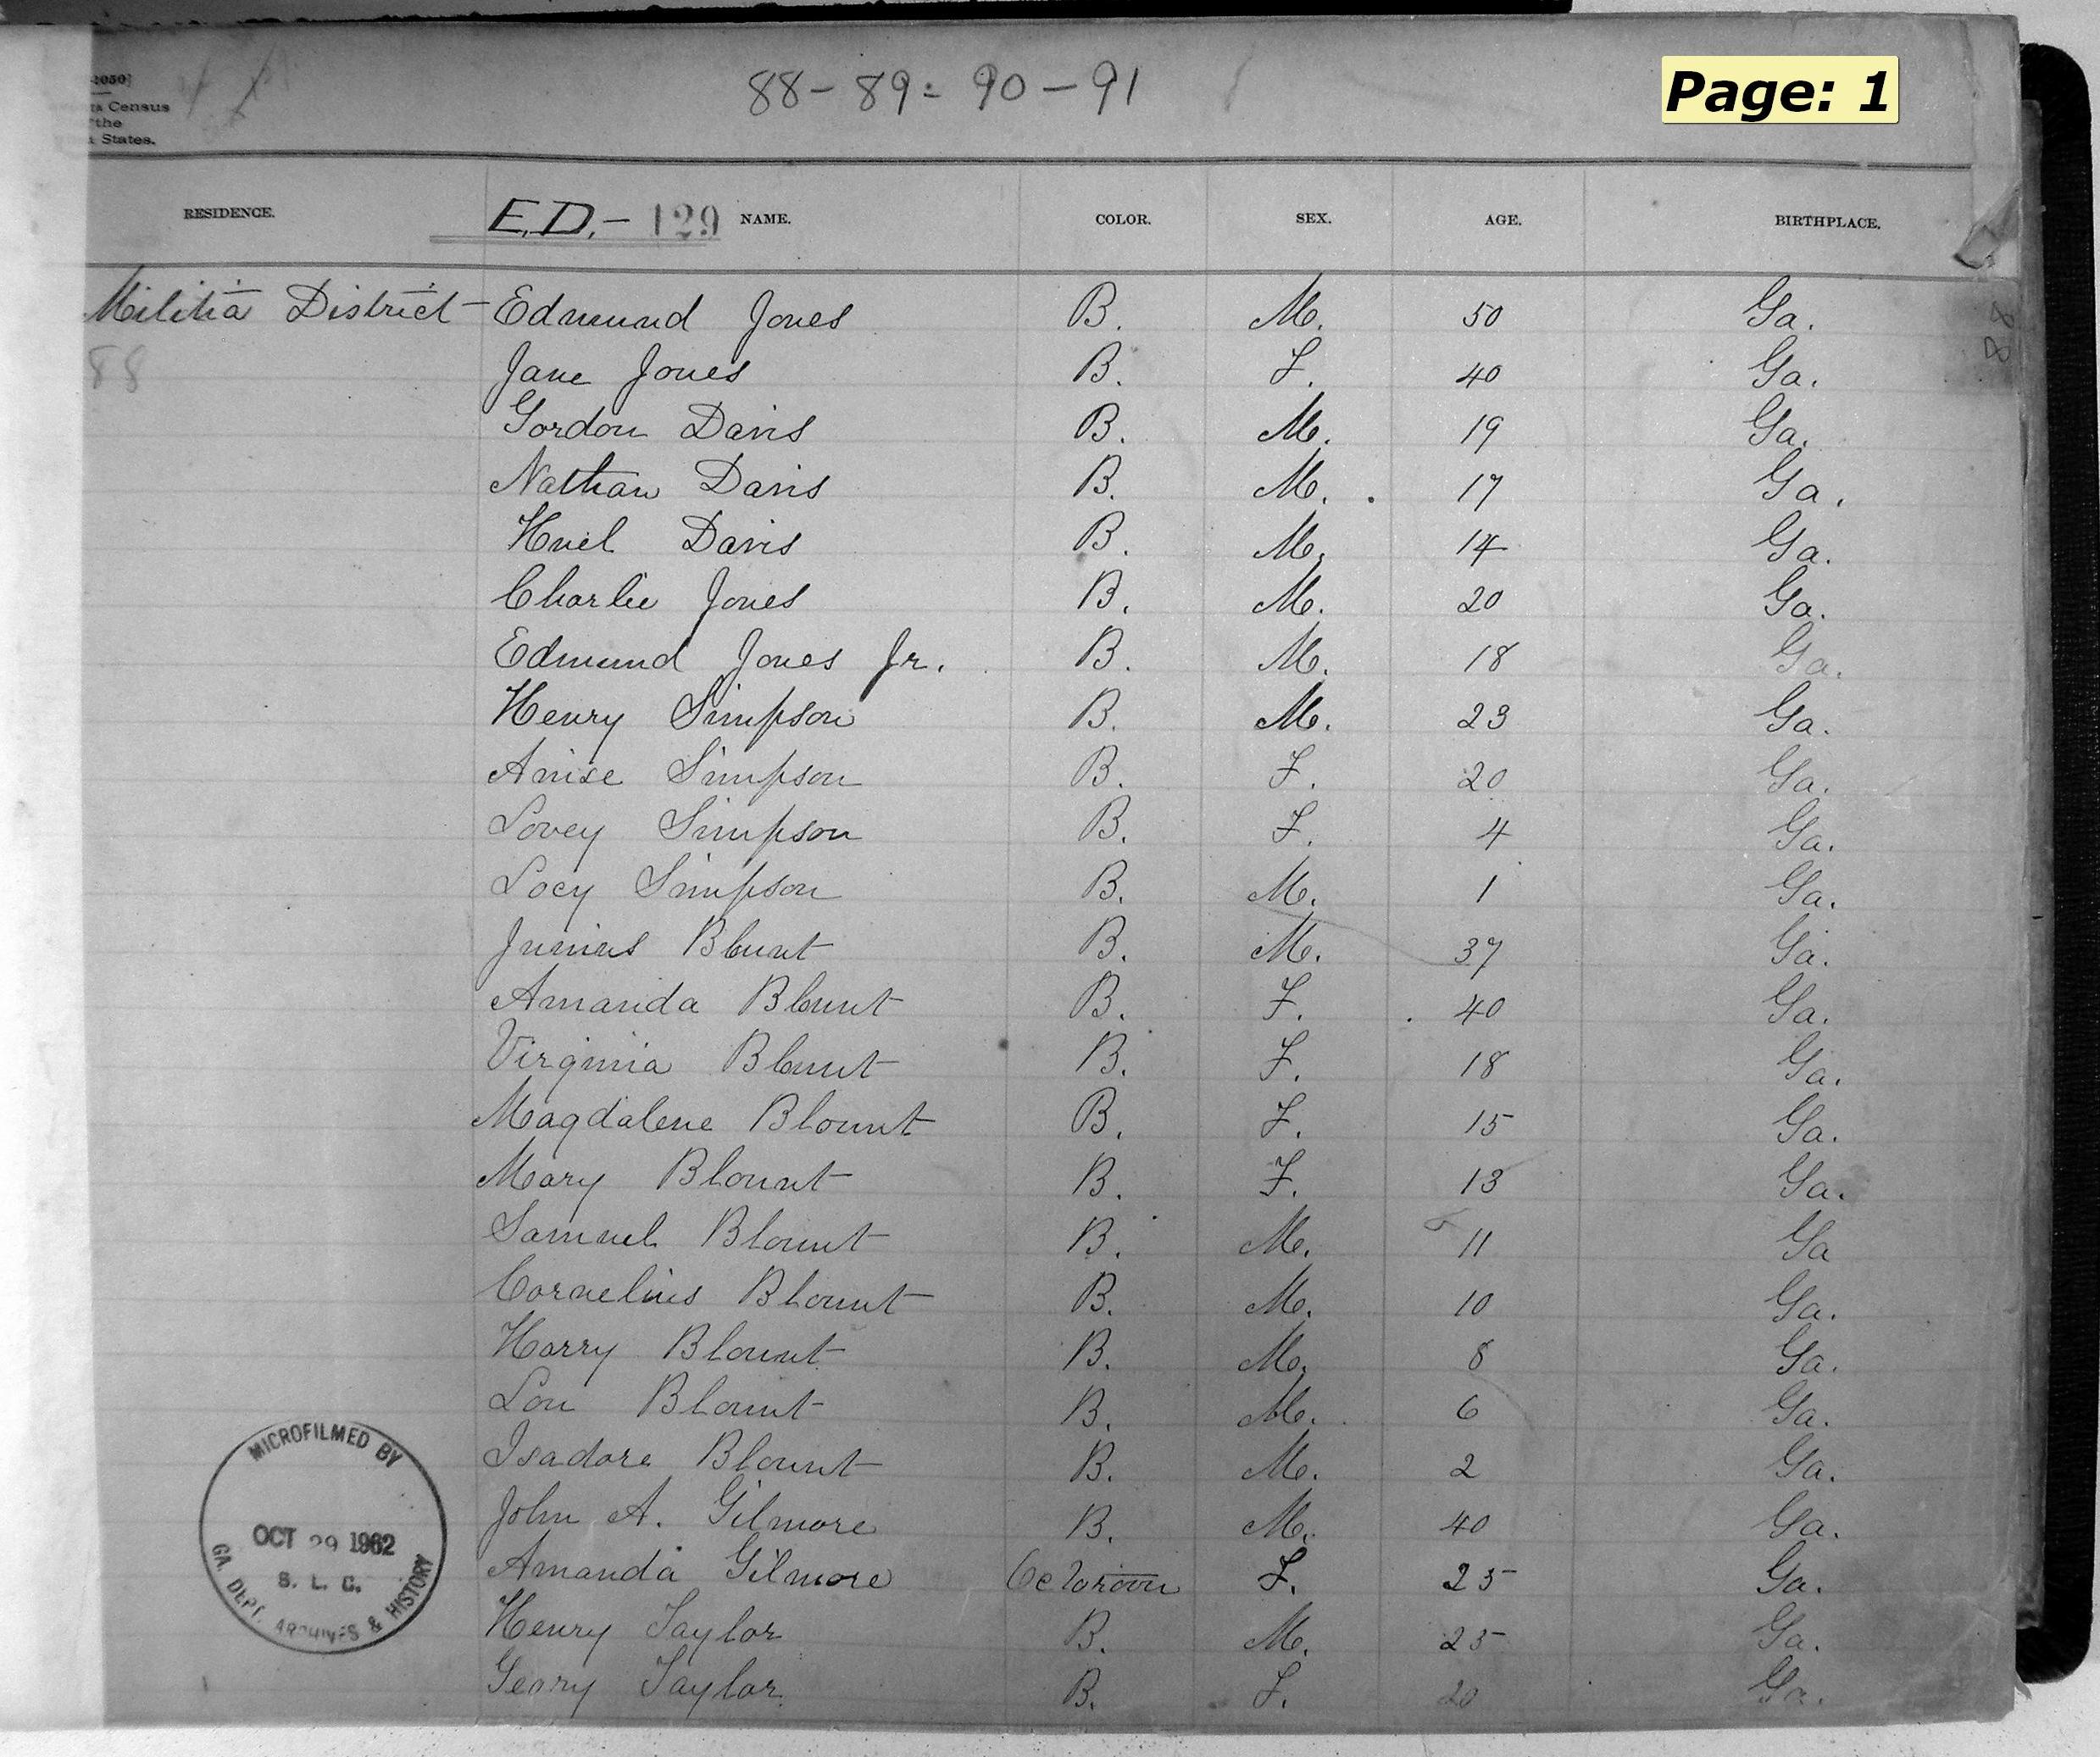 -1050]
Census
the
States.
88-89=90-91
Page: 1
RESIDENCE. E.D.- 129 NAME. COLOR. SEX. AGE. BIRTHPLACE.
Militia District Edmund Jones B. M. 50 Ga. 88
88 Jane Jones B. F. 40 Ga.
Gordon Davis B. M. 19 Ga.
Nathan Davis B. M. 17 Ga.
Huel Davis B. M. 14 Ga.
Charlie Jones B. M. 20 Ga.
Edmund Jones Jr. B. M. 18 Ga.
Henry Simpson B. M. 23 Ga.
Simpson B. F. 20 Ga.
Lovey Simpson B. F. 4 Ga.
Locy Simpson B. M. 1 Ga.
Junius Blount B. M. 37 Ga.
Amanda Blount B. F. 40 Ga.
Virginia Blount B. F. 18 Ga.
Magdalene Blount B. F. 15 Ga.
Mary Blount B. F. 13 Ga.
Samuel Blount B. M. 11 Ga
Cornelius Blount B. M. 10 Ga.
Harry Blount B. M. 8 Ga.
Lou Blount B. M. 6 Ga.
Isadore Blount B. M. 2 Ga.
John A. Gilmore B. M. 40 Ga.
Amanda Gilmore Octoroon F. 25 Ga.
Henry Taylor B. M. 25 Ga.
Geary Taylor B. F. 20 Ga.
MICROFILMED BY
OCT 29 1962
S. L. C.
GA. DEPT. ARCHIVES & HISTORY